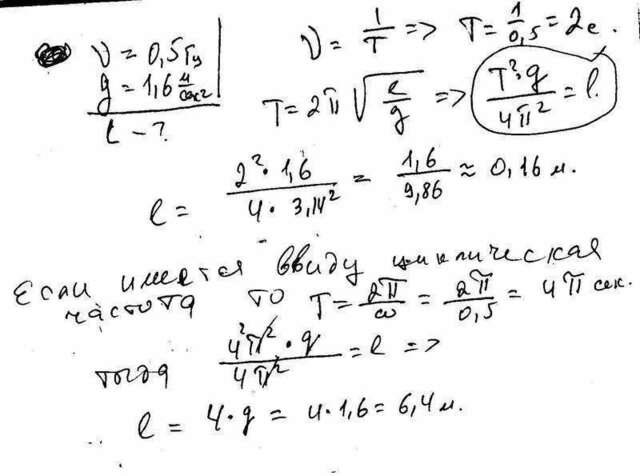 ν = 0,5 Гц
g = 1,6 м/сек²
l - ?
ν = 1/T => T = 1/0,5 = 2с.
T = 2π √(l/g) => T²g/4π² = l.
l = 2²·1,6/4·3,14² = 1,6/9,86 ≈ 0,16 м.
Если имеется ввиду циклическая
частота то T = 2π/ω = 2π/0,5 = 4π сек.
тогда 4²π²·g/4π² = l =>
l = 4·g = 4·1,6 = 6,4 м.